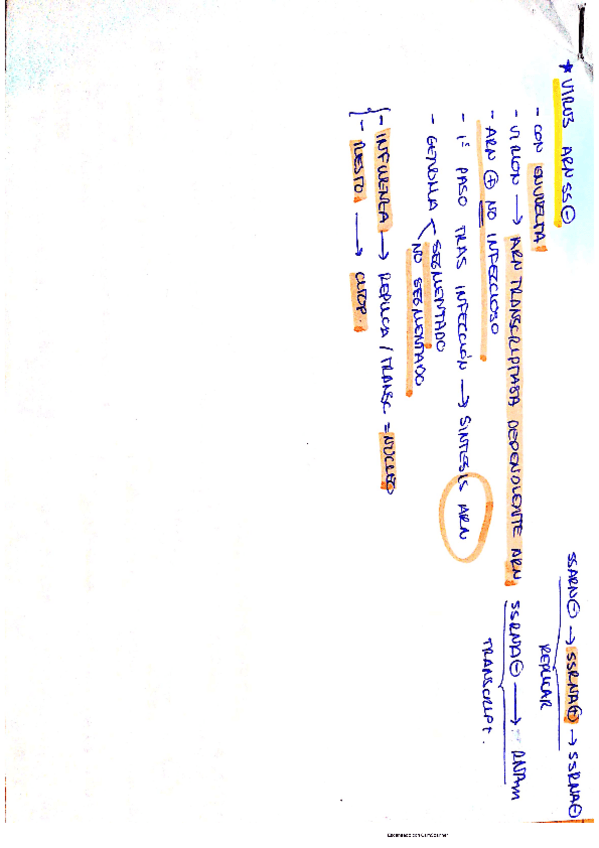 * VIRUS ARN SS ⊖
- CON ENVUELTA
- VIRION → ARN TRANSCRIPTASA DEPENDIENTE ARN
- ARN ⊕ NO INFECCIOSO
- 1º PASO TRAS INFECCIÓN → SINTESIS ARN
- GENOMA < SEGMENTADO
NO SEGMENTADO
{- INFLUENZA → REPLICA / TRANSC = NÚCLEO
{- RESTO → CITOP.
SSARN⊖ → SSRNA⊕ → SSRNA⊖
REPLICAR
SSRNA⊖ → RNAm
TRANSCRIPT.
Escaneado con CamScanner